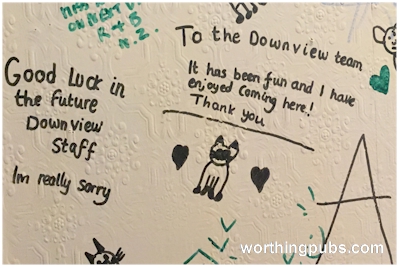 ON NEXT V
R + B
N.Z.
To the Downview team
It has been fun and I have
enjoyed coming here!
Thank you
Good Luck in
the future
Downview
Staff
Im really sorry
A
worthingpubs.com